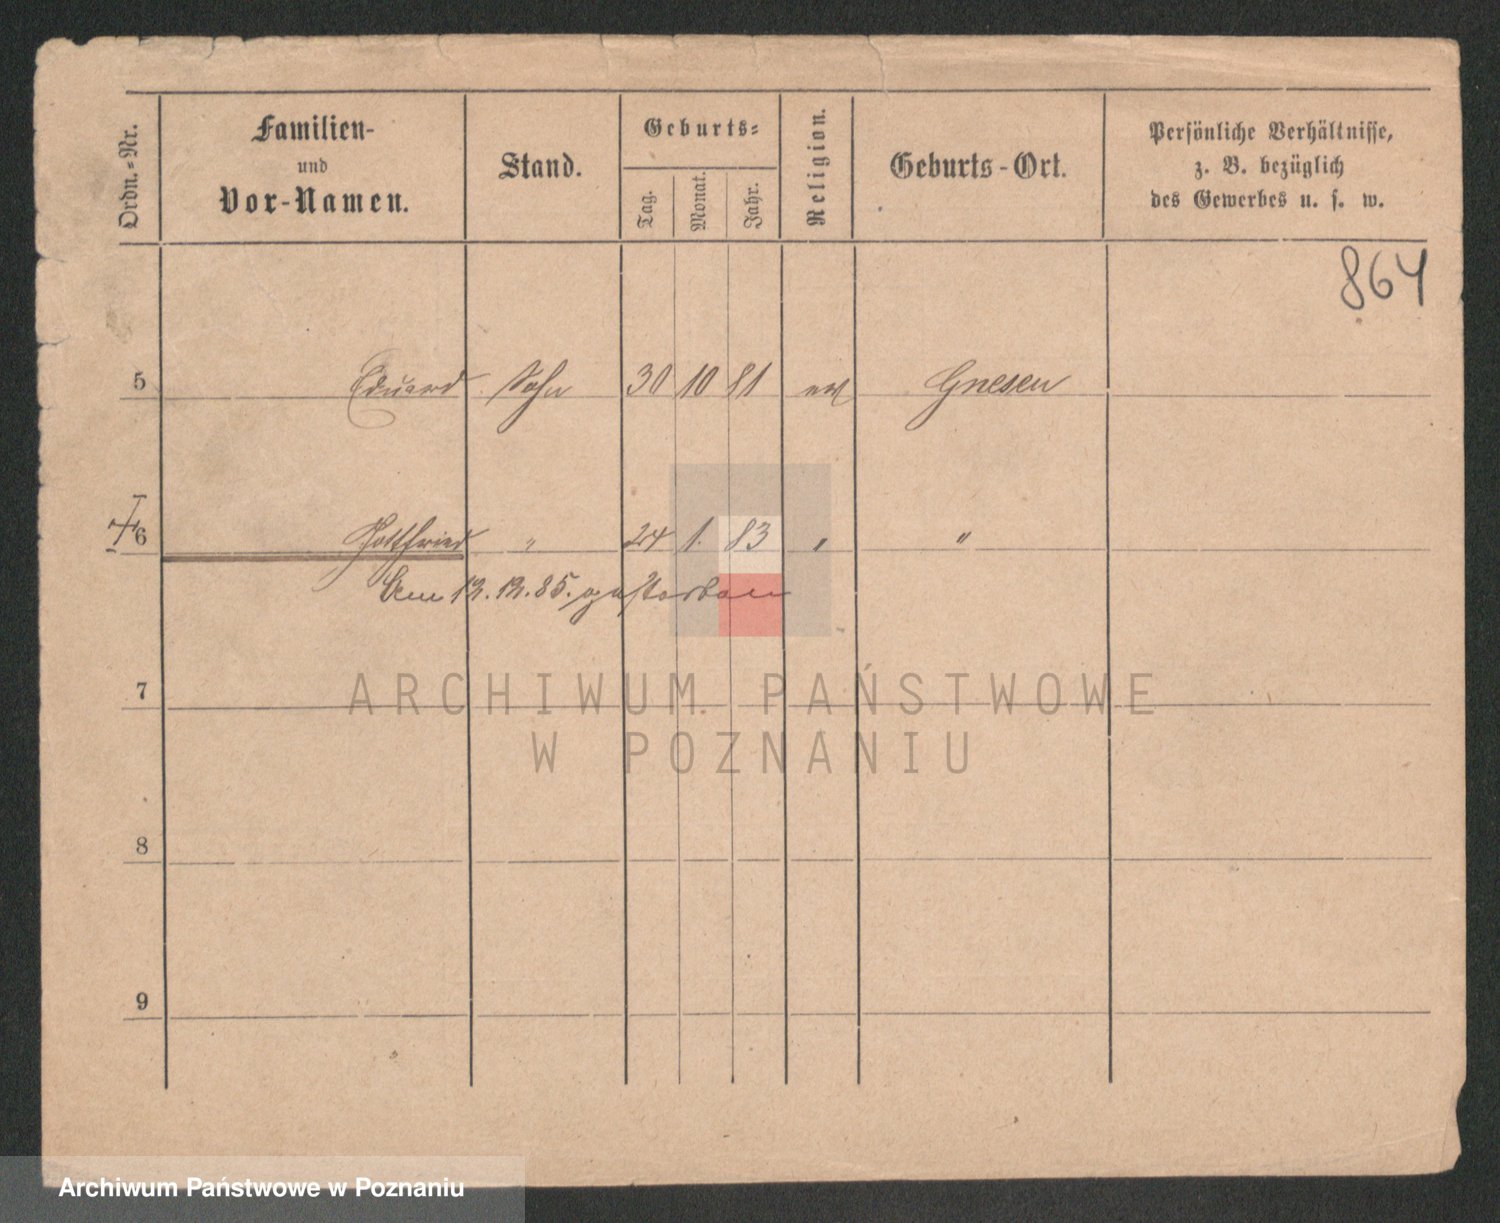 Ordn.-Nr.
Familien-
und
Vor-Namen.
Stand.
Geburts-
Tag.
Monat.
Jahr.
Religion.
Geburts-Ort.
Persönliche Verhältnisse,
z. B. bezüglich
des Gewerbes u. s. w.
864
5 Eduard Sohn 30 10 81 ev Gnesen
6 Gottfried " 24 1. 83 " "
Am 12. 12. 85. gestorben
7
8
9
ARCHIWUM PAŃSTWOWE
W POZNANIU
Archiwum Państwowe w Poznaniu